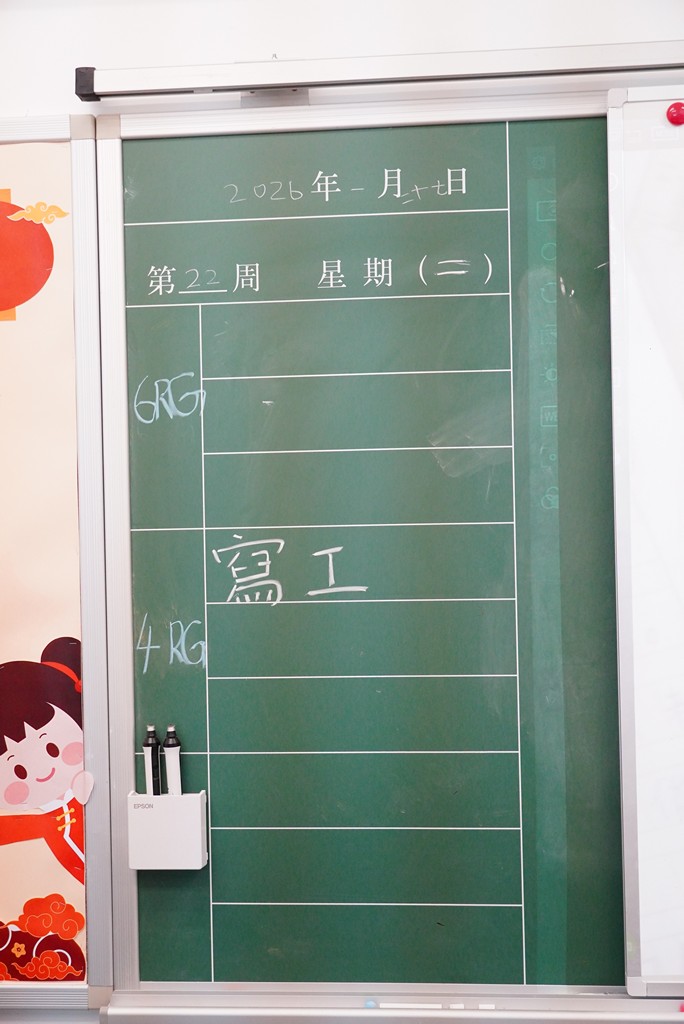 2026年一月二十七日
第22周 星期(二)
6RG
寫工
4RG
EPSON